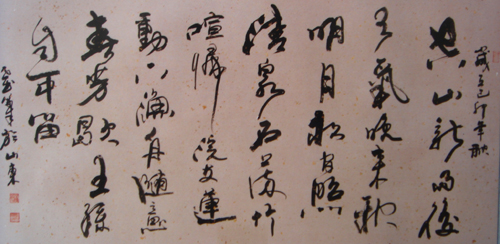 歲在己卯年秋
空山新雨後
天氣晚來秋
明月松間照
清泉石上流竹
喧歸浣女蓮
動下漁舟隨意
春芳歇王孫
自可留
於山東